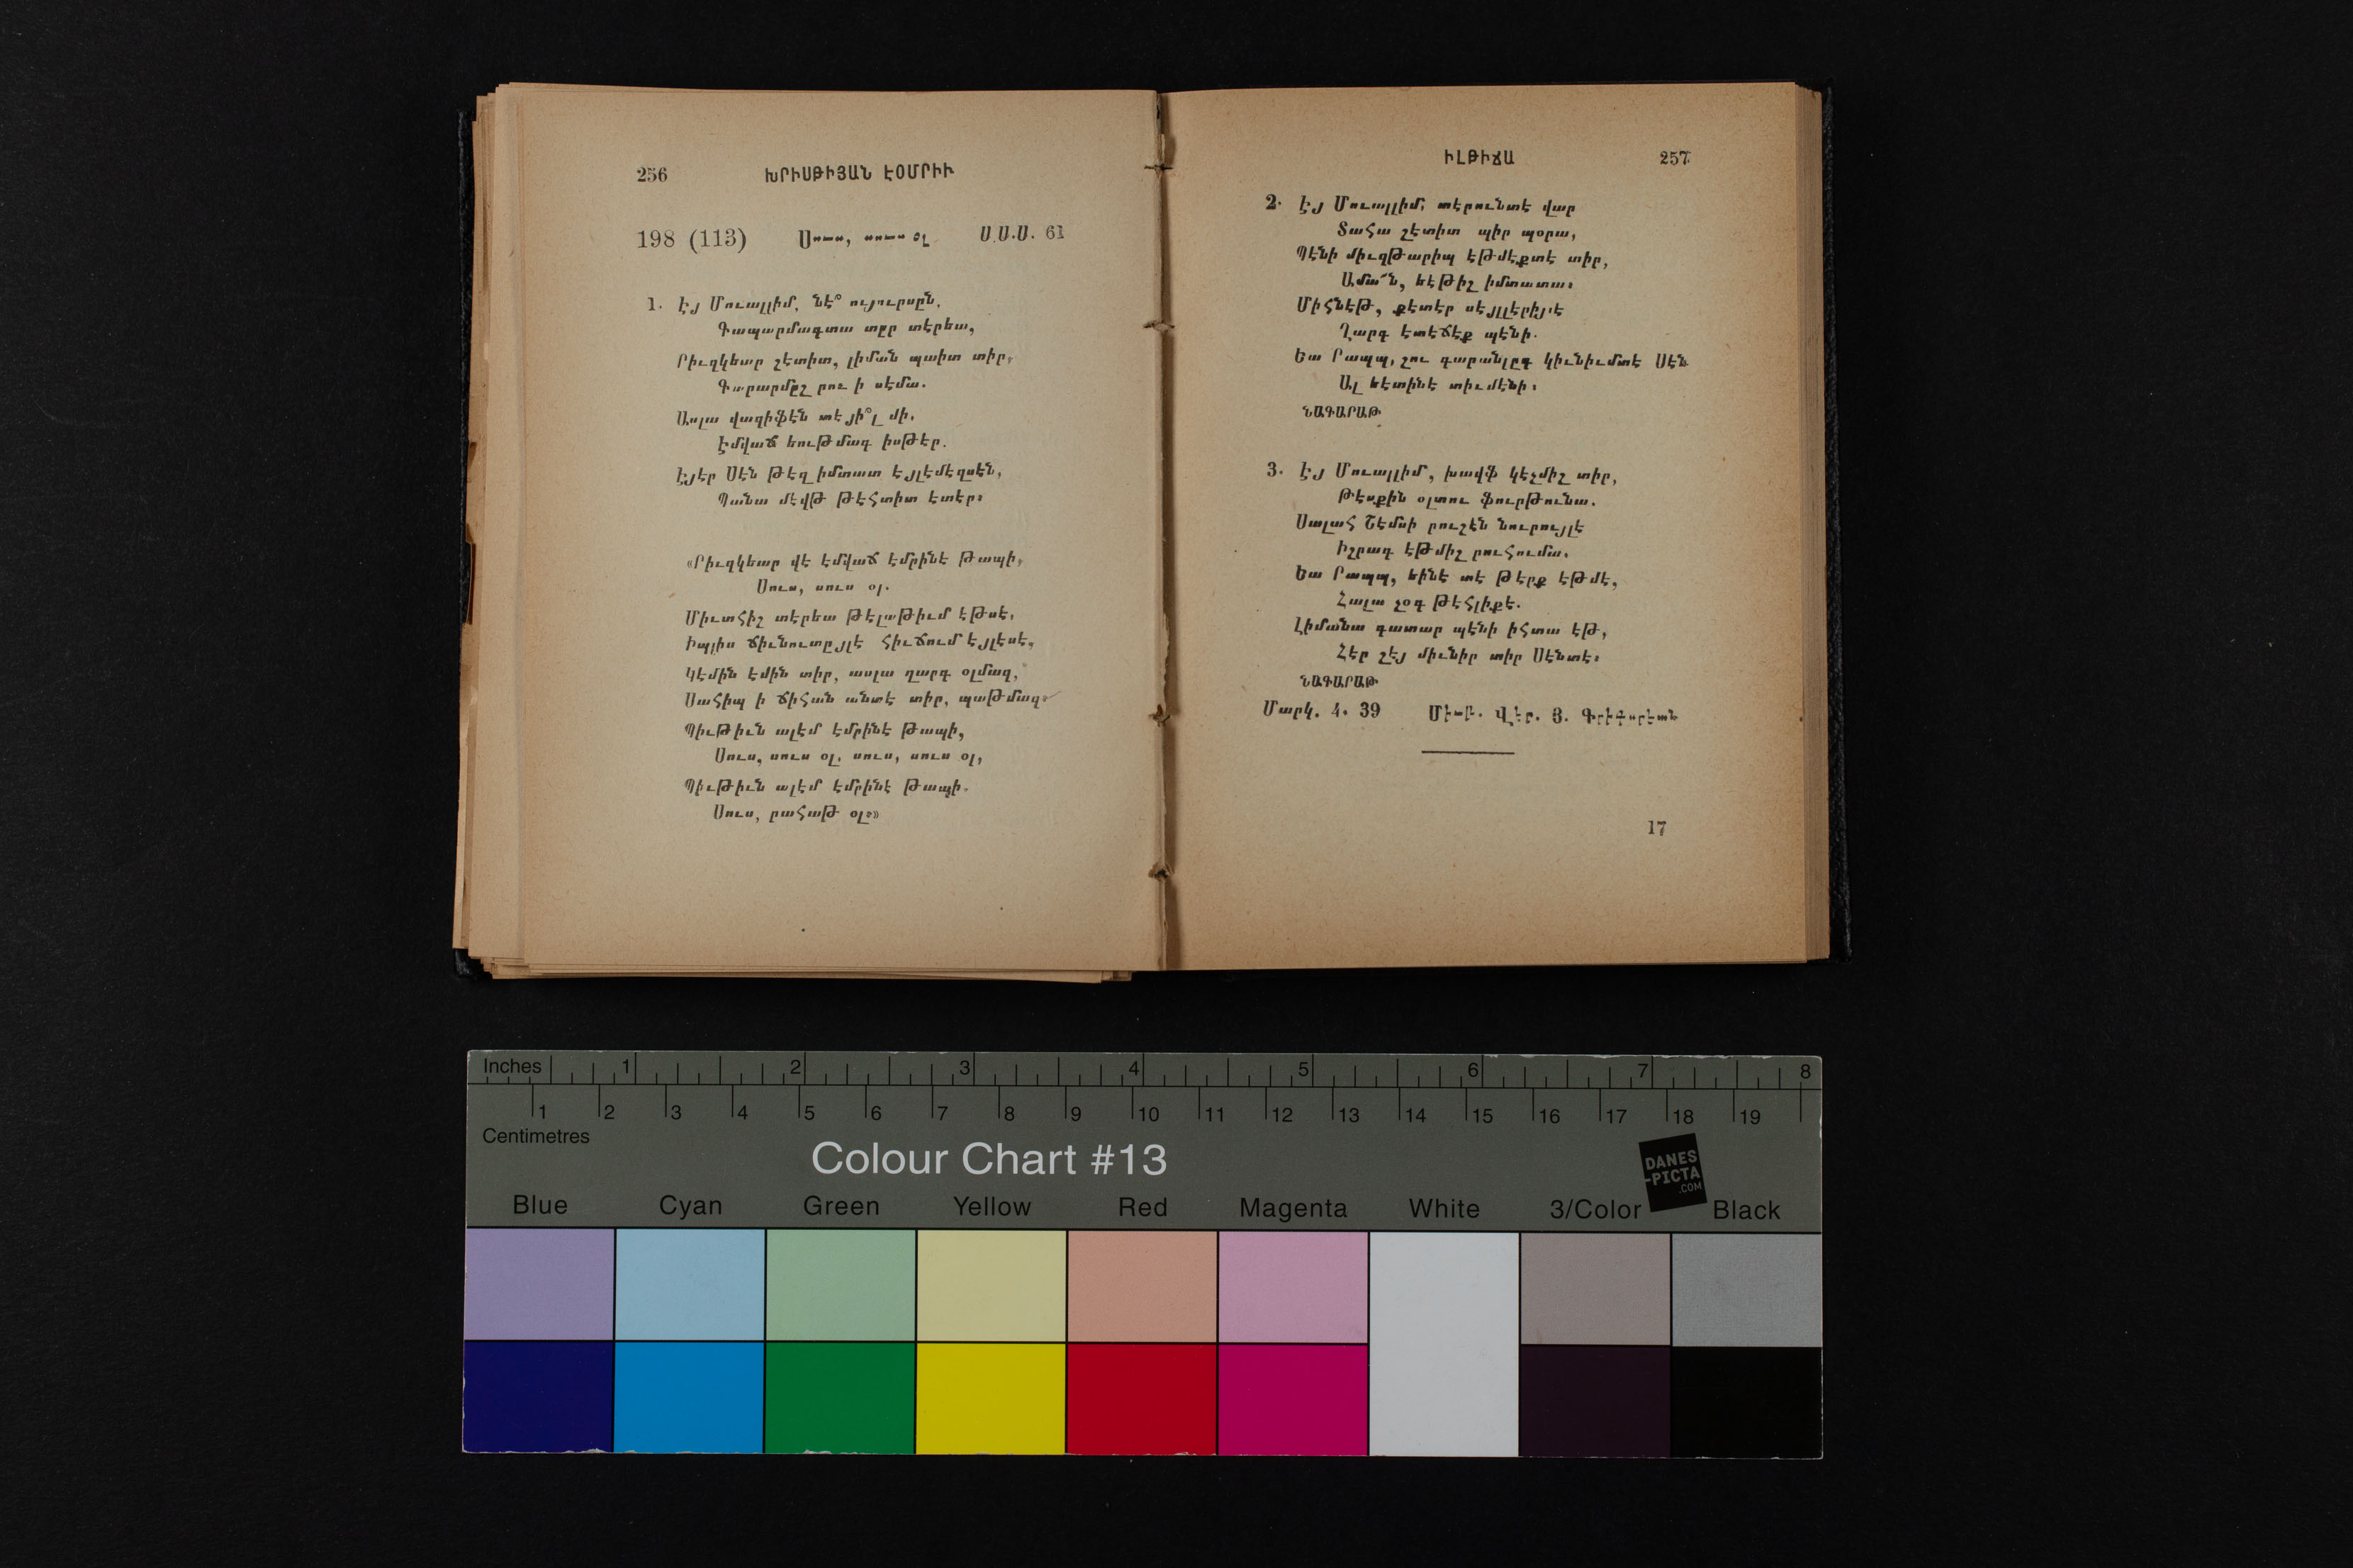 256 ԽՐԻՍԹԻՅԱՆ ԷՕՄՐԻՒ
198 (113) Սուս, սուս օլ Ս.Ս.Ս. 61
1. Էյ Մուալլիմ, նէ՞ ույուրսըն,
Գապարմագտա տըր տէրեա,
Րիւզկեար շէտիտ, լիման պաիտ տիր,
Գարարմըշ րու ի սէմա.
Ասլա վազիֆէն տէյի՞լ մի,
Էմվաճ եութմագ իսթէր.
Էյէր Սէն թէզ իմտատ էյլէմէզսէն,
Պանա մէվթ թէհտիտ էտէր։
«Րիւզկեար վէ էմվաճ էմրինէ թապի,
Սուս, սուս օլ.
Միւտհիշ տէրեա թէլաթիւմ էթսէ,
Իպլիս ճիւնուտըյլէ հիւճում էյլէսէ,
Կէմին էմին տիր, ասլա ղարգ օլմազ,
Սահիպ ի ճիհան անտէ տիր, պաթմազ։
Պիւթիւն ալէմ էմրինէ թապի,
Սուս, սուս օլ, սուս, սուս օլ,
Պիւթիւն ալէմ էմրինէ թապի.
Սուս, րահաթ օլ։»
ԻԼԹԻՃԱ 257
2. Էյ Մուալլիմ, տէրունտէ վար
Տահա շէտիտ պիր պօրա,
Պէնի միւզթարիպ էթմէքտէ տիր,
Ամա՜ն, եէթիշ իմտատա։
Միհնէթ, քէտէր սէյլլէրիյլե
Ղարգ էտէճէք պէնի.
Եա Րապպ, շու գարանլըգ կիւնիւմտէ Սէն
Ալ եէտինէ տիւմէնի։
ՆԱԳԱՐԱԹ
3. Էյ Մուալլիմ, խավֆ կէչմիշ տիր,
Թէսքին օլտու ֆուրթունա.
Սալահ Շէմսի րուշէն նուրույլէ
Իշրագ էթմիշ րուհումա.
Եա Րապպ, եինէ տէ թէրք էթմէ,
Հալա չօգ թէհլիքէ.
Լիմանա գատար պէնի իհտա էթ,
Հէր շէյ միւնիր տիր Սէնտէ։
ՆԱԳԱՐԱԹ
Մարկ. 4. 39 Միւթ. Վէր. Յ. Գրիգորեան
17
Inches 1 2 3 4 5 6 7 8
1 2 3 4 5 6 7 8 9 10 11 12 13 14 15 16 17 18 19
Centimetres
Colour Chart #13
DANES
-PICTA
.COM
Blue Cyan Green Yellow Red Magenta White 3/Color Black